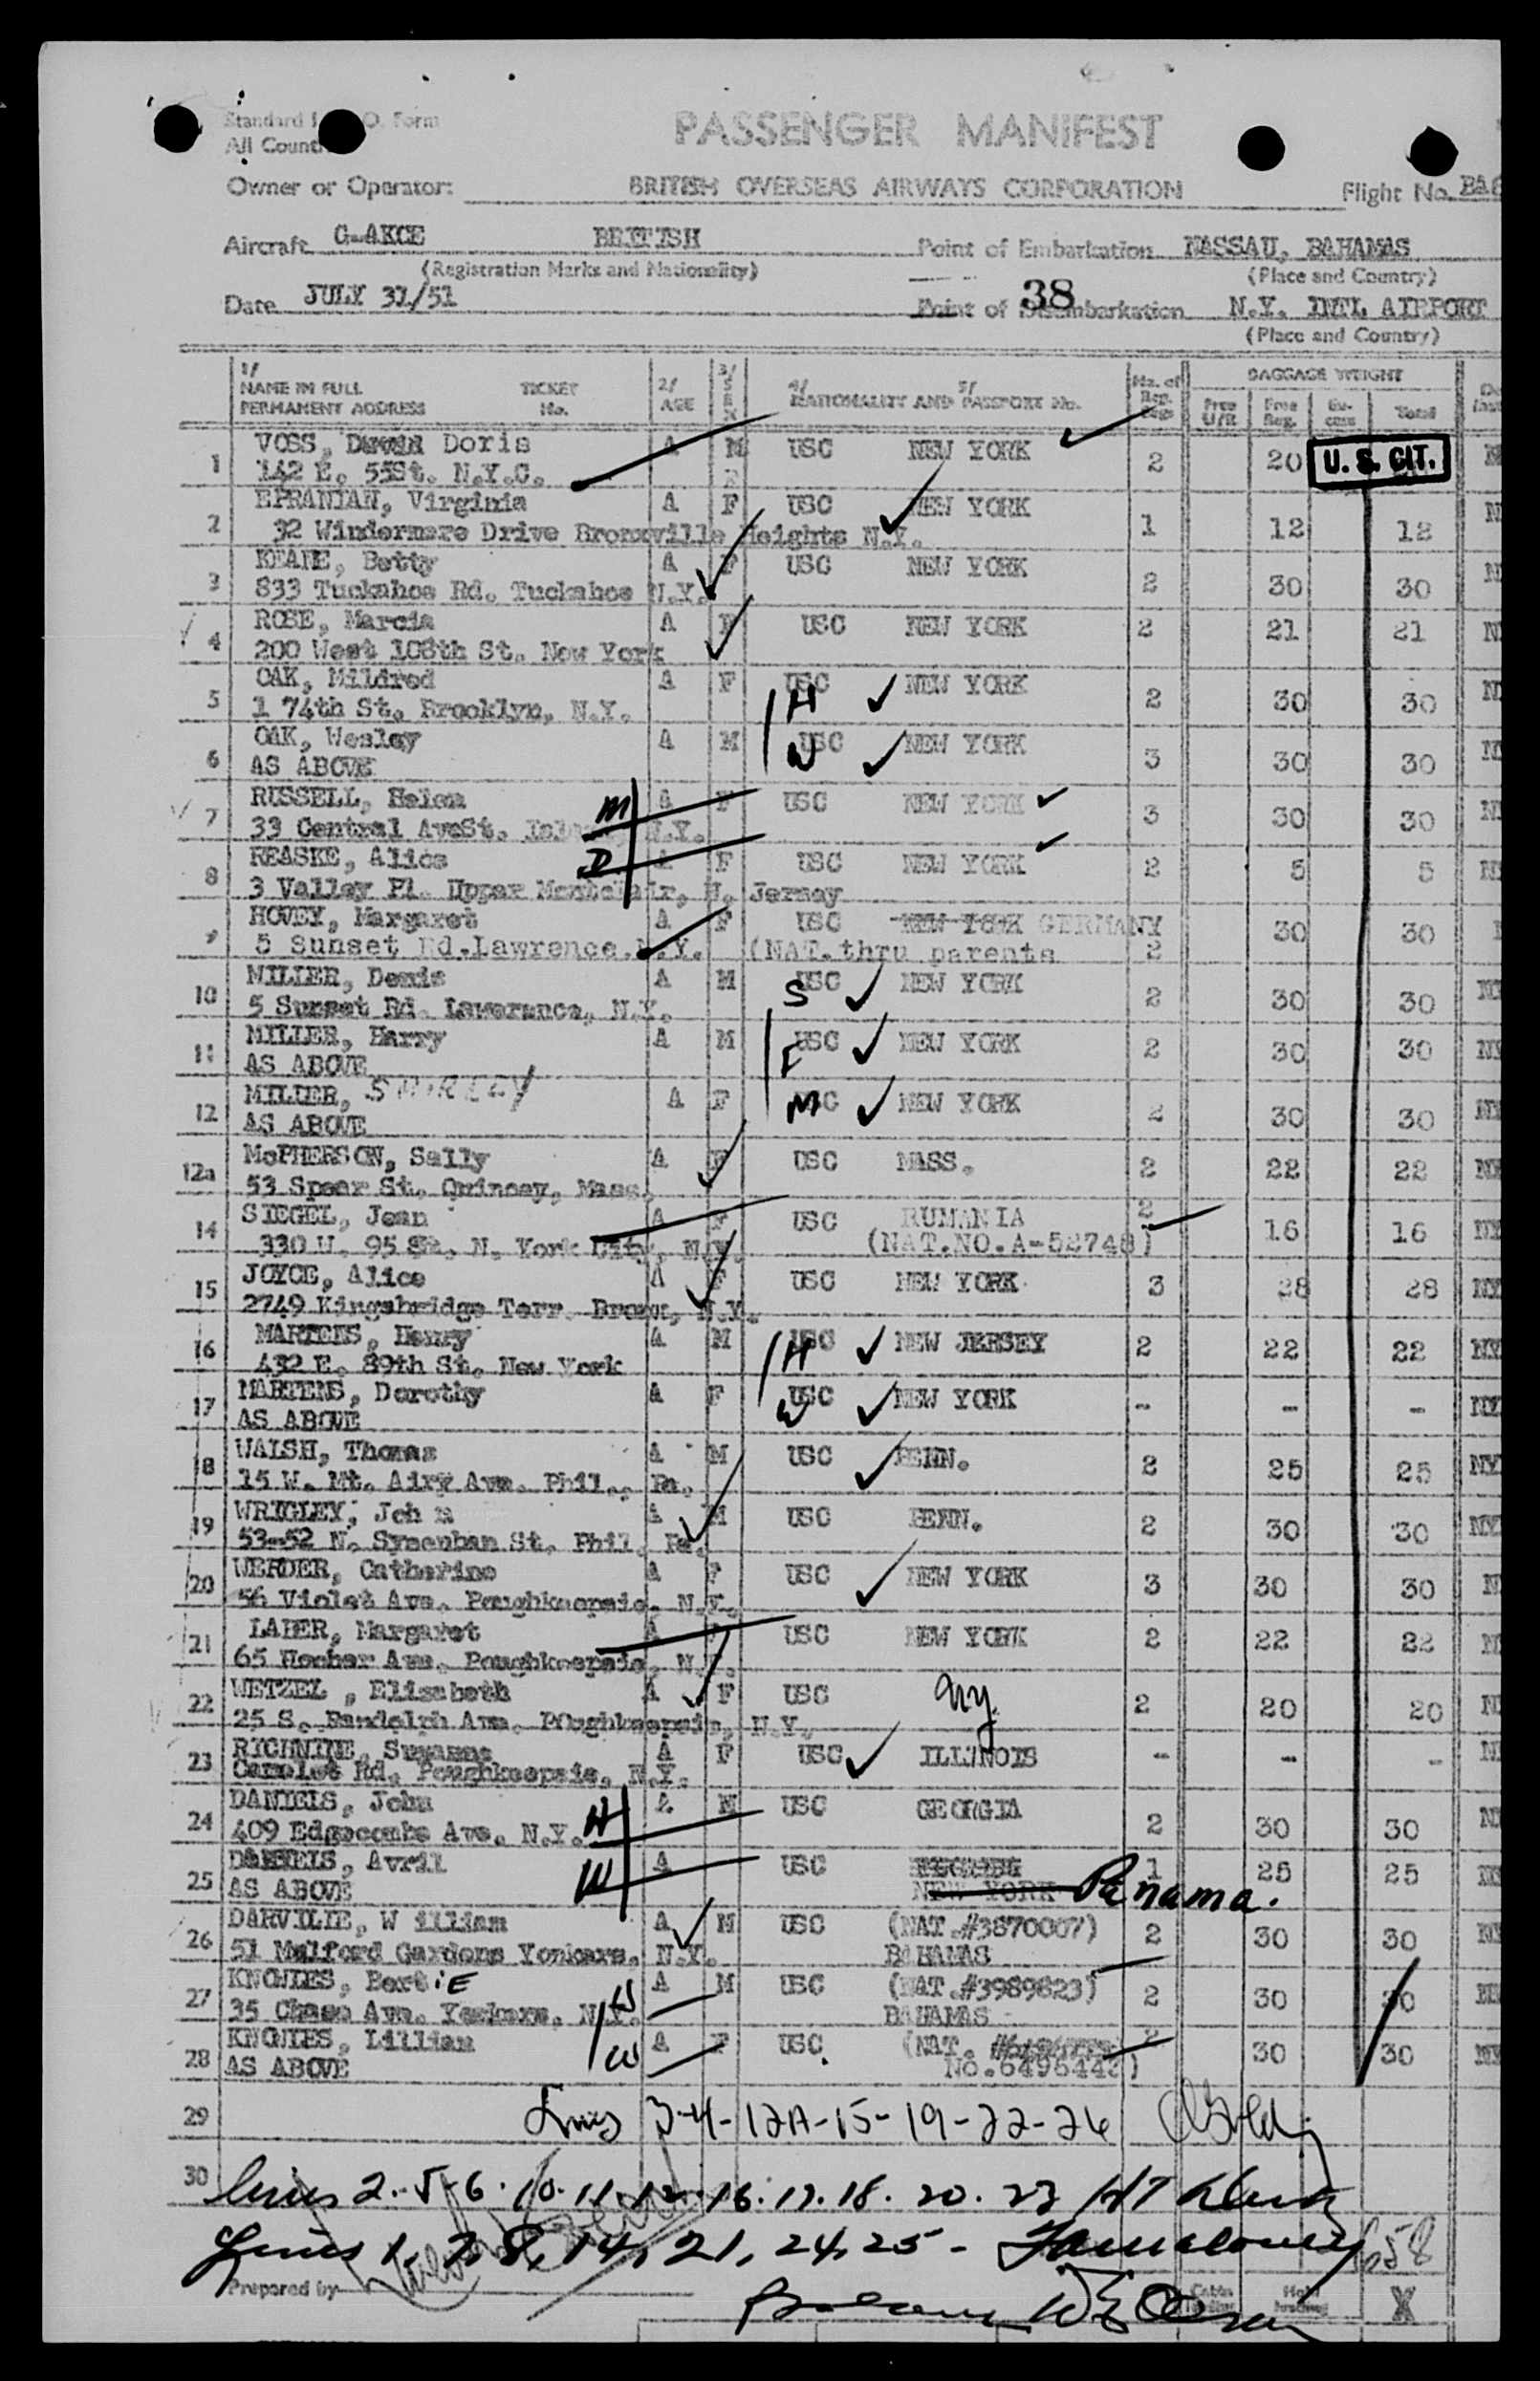 PASSENGER MANIFEST
Owner or Operator: BRITISH OVERSEAS AIRWAYS CORPORATION Flight No.
Aircraft G-AKCE BRITISH Point of Embarkation NASSAU, BAHAMAS
(Registration Marks and Nationality) (Place and Country)
Date JULY 31/51 38 Point of Disembarkation N.Y. INTL AIRPORT
(Place and Country)
1/ 2/ 3/ 4/ 5/ BAGGAGE WEIGHT
NAME IN FULL TICKET AGE SEX NATIONALITY AND PASSPORT No.
PERMANENT ADDRESS No. Total
1 VOSS, Doris A M USC NEW YORK 2 20 U. S. CIT.
142 E. 55St. N.Y.C.
2 EPRANIAN, Virginia A F USC NEW YORK 1 12 12
32 Windermere Drive Bronxville Heights N.Y.
3 KEANE, Betty A F USC NEW YORK 2 30 30
833 Tuckahoe Rd. Tuckahoe N.Y.
4 ROSE, Marcia A F USC NEW YORK 2 21 21
200 West 108th St. New York
5 OAK, Mildred A F USC H NEW YORK 2 30 30
1 74th St. Brooklyn, N.Y.
6 OAK, Wesley A M USC W NEW YORK 3 30 30
AS ABOVE
7 RUSSELL, Helen M A F USC NEW YORK 3 30 30
33 Central Ave St. N.Y.
8 REASKE, Alice D A F USC NEW YORK 2 5 5
3 Valley Pl. Upper Montclair, N. Jersey
9 HOVEY, Margaret A F USC NEW YORK GERMANY 30 30
5 Sunset Rd. Lawrence. N.Y. (NAT. thru parents 2
10 MILLER, Denis A M USC S NEW YORK 2 30 30
5 Sunset Rd. Lawerance, N.Y.
11 MILLER, Harry A M USC F NEW YORK 2 30 30
AS ABOVE
12 MILLER, SHIRLEY A F USC M NEW YORK 2 30 30
AS ABOVE
12a McPHERSON, Sally A F USC MASS. 2 22 22
53 Spear St. Quincey, Mass.
14 SIEGEL, Jean A F USC RUMANIA 2 16 16
330 W. 95 St. N. York City, N.Y. (NAT.NO.A-52748)
15 JOYCE, Alice A F USC NEW YORK 3 28 28
2749 Kingsbridge Terr. Bronx, N.Y.
16 MARTENS, Henry A M USC H NEW JERSEY 2 22 22
432 E. 89th St. New York
17 MARTENS, Dorothy A F USC W NEW YORK - - -
AS ABOVE
18 WALSH, Thomas A M USC PENN. 2 25 25
15 W. Mt. Airy Ave. Phil., Pa.
19 WRIGLEY, Joh n A M USC PENN. 2 30 30
53-52 N. St. Phil. Pa.
20 WERDER, Catherine A F USC NEW YORK 3 30 30
56 Violet Ave. Poughkeepsie. N.Y.
21 LAHER, Margaret A F USC NEW YORK 2 22 22
65 Hooker Ave. Poughkeepsie, N.Y.
22 WETZEL , Elizabeth A F USC Ny. 2 20 20
25 S. Randolph Ave. Poughkeepsie, N.Y.
23 Suzanne A F USC ILLINOIS - - -
Camelot Rd. Poughkeepsie, N.Y.
24 DANIELS, John H A M USC GEORGIA 2 30 30
409 Edgecombe Ave. N.Y.
25 DANIELS, Avril W A USC 1 25 25
AS ABOVE NEW YORK Panama.
26 DARVILLE, W illiam A M USC (NAT.#3870007) 2 30 30
51 Mulford Gardens Yonkers. N.Y. BAHAMAS
27 KNOWLES, BertiE H A M USC (NAT.#3989823) 2 30 30
35 Chase Ave. Yonkers. N.Y. BAHAMAS
28 KNOWLES, Lillian W A F USC (NAT. 2 30 30
AS ABOVE No.6496442)
29 Lines 3-4-12A-15-19-22-26
30 Lines 2.5.6.10.11.12.16.17.18.20.23
Lines 1, 7, 8, 14, 21, 24, 25 -
658
Prepared by X